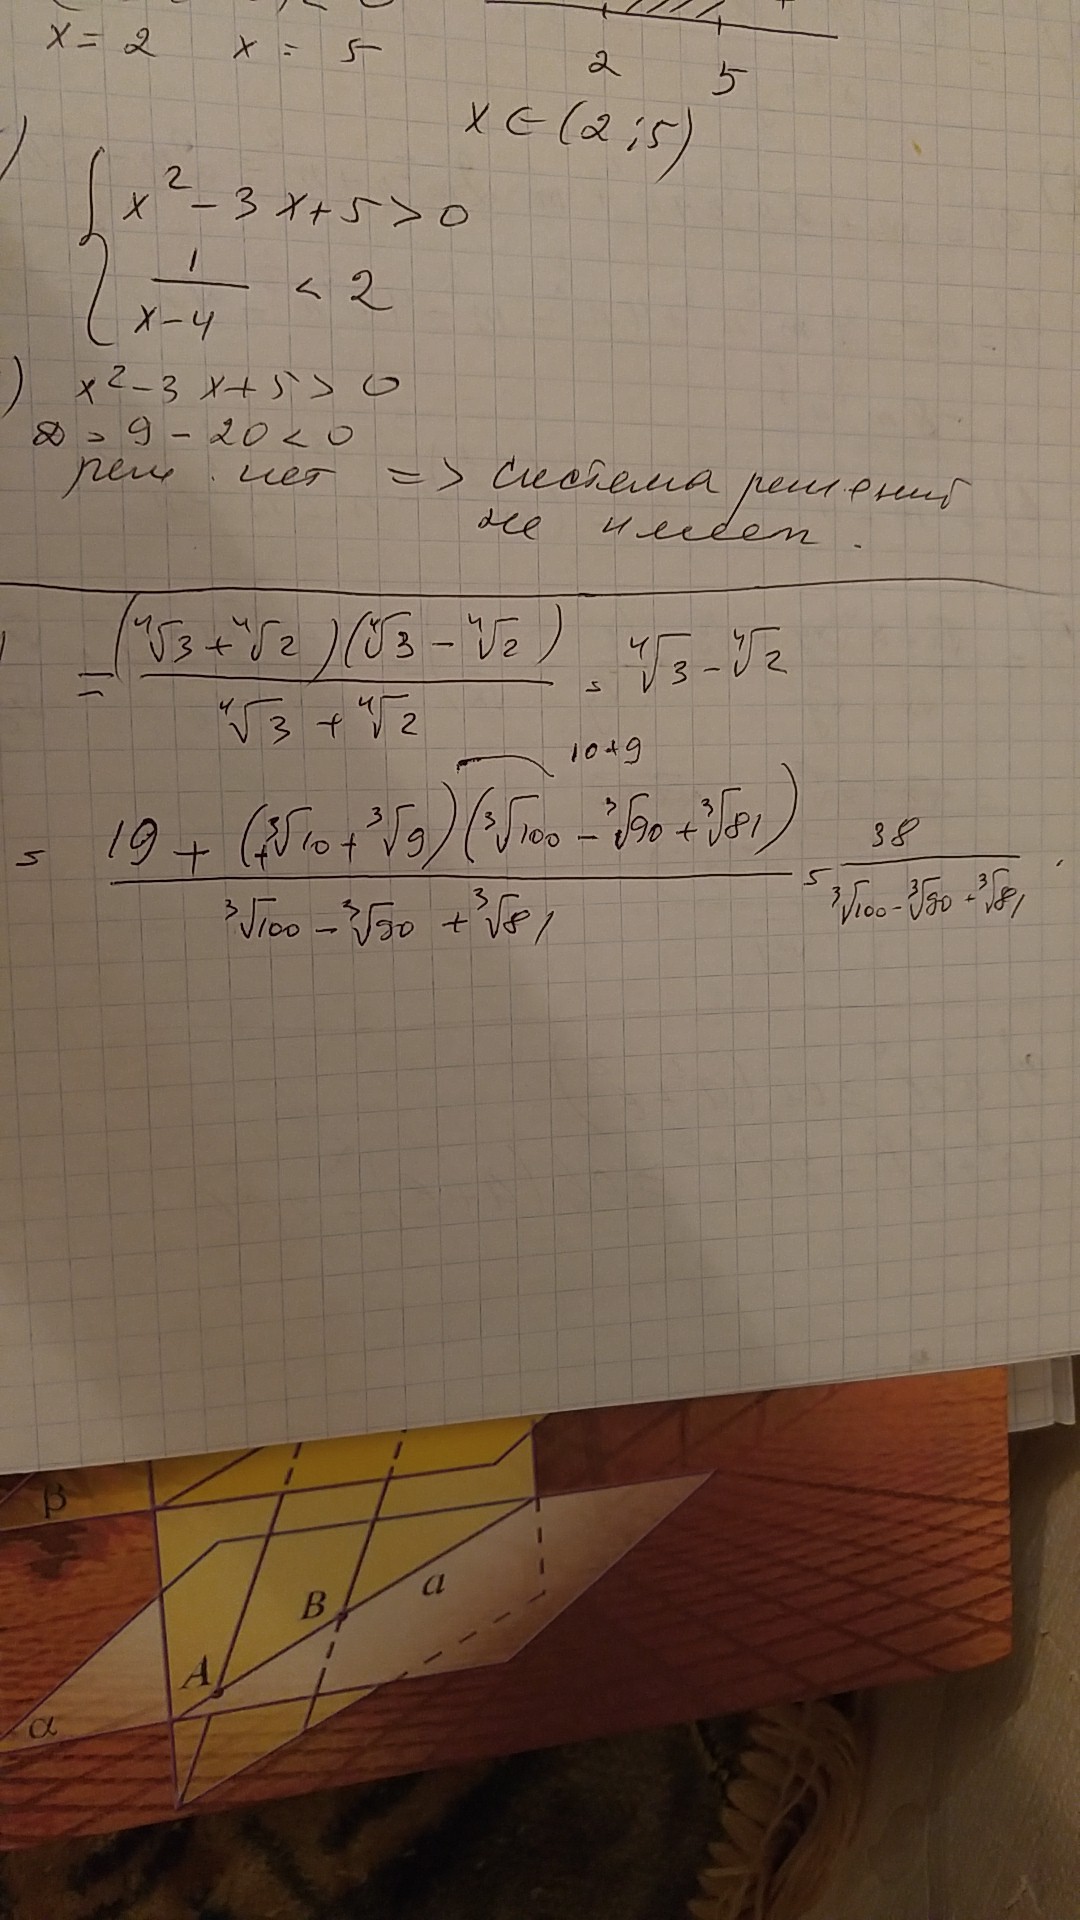 x = 2 x = 5
2 5
x ∈ (2 ; 5)
)
{ x² - 3x + 5 > 0
1/(x-4) < 2
) x² - 3x + 5 > 0
D = 9 - 20 < 0
реш. нет => система решений
не имеет.
= (⁴√3 + ⁴√2)(⁴√3 - ⁴√2) / (⁴√3 + ⁴√2) = ⁴√3 - ⁴√2
10+9
= (19 + (³√10 + ³√9)(³√100 - ³√90 + ³√81)) / (³√100 - ³√90 + ³√81) = 38 / (³√100 - ³√90 + ³√81) .
β
B a
A
α